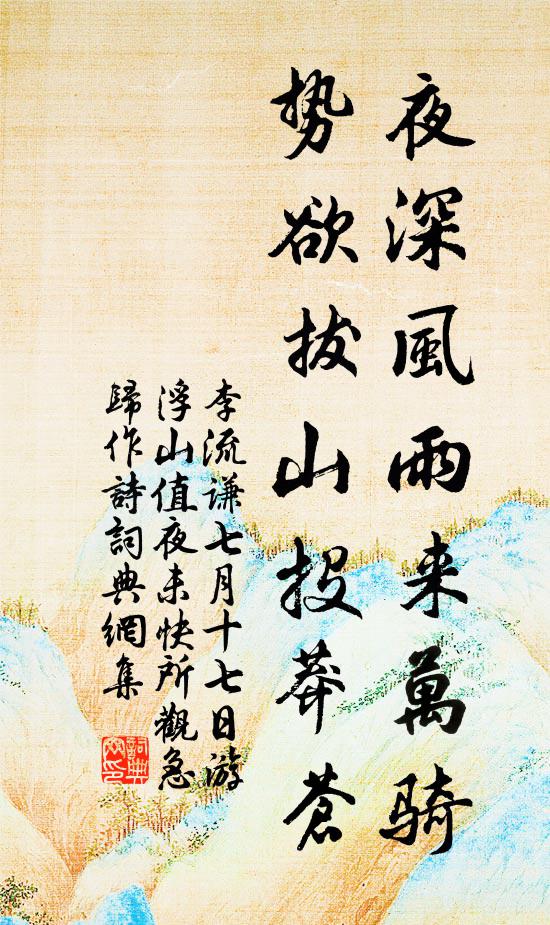 夜深風雨来萬騎
势欲拔山投莽蒼
李流谦七月十七日游
浮山值夜未快所觀急
歸作詩詞典網集